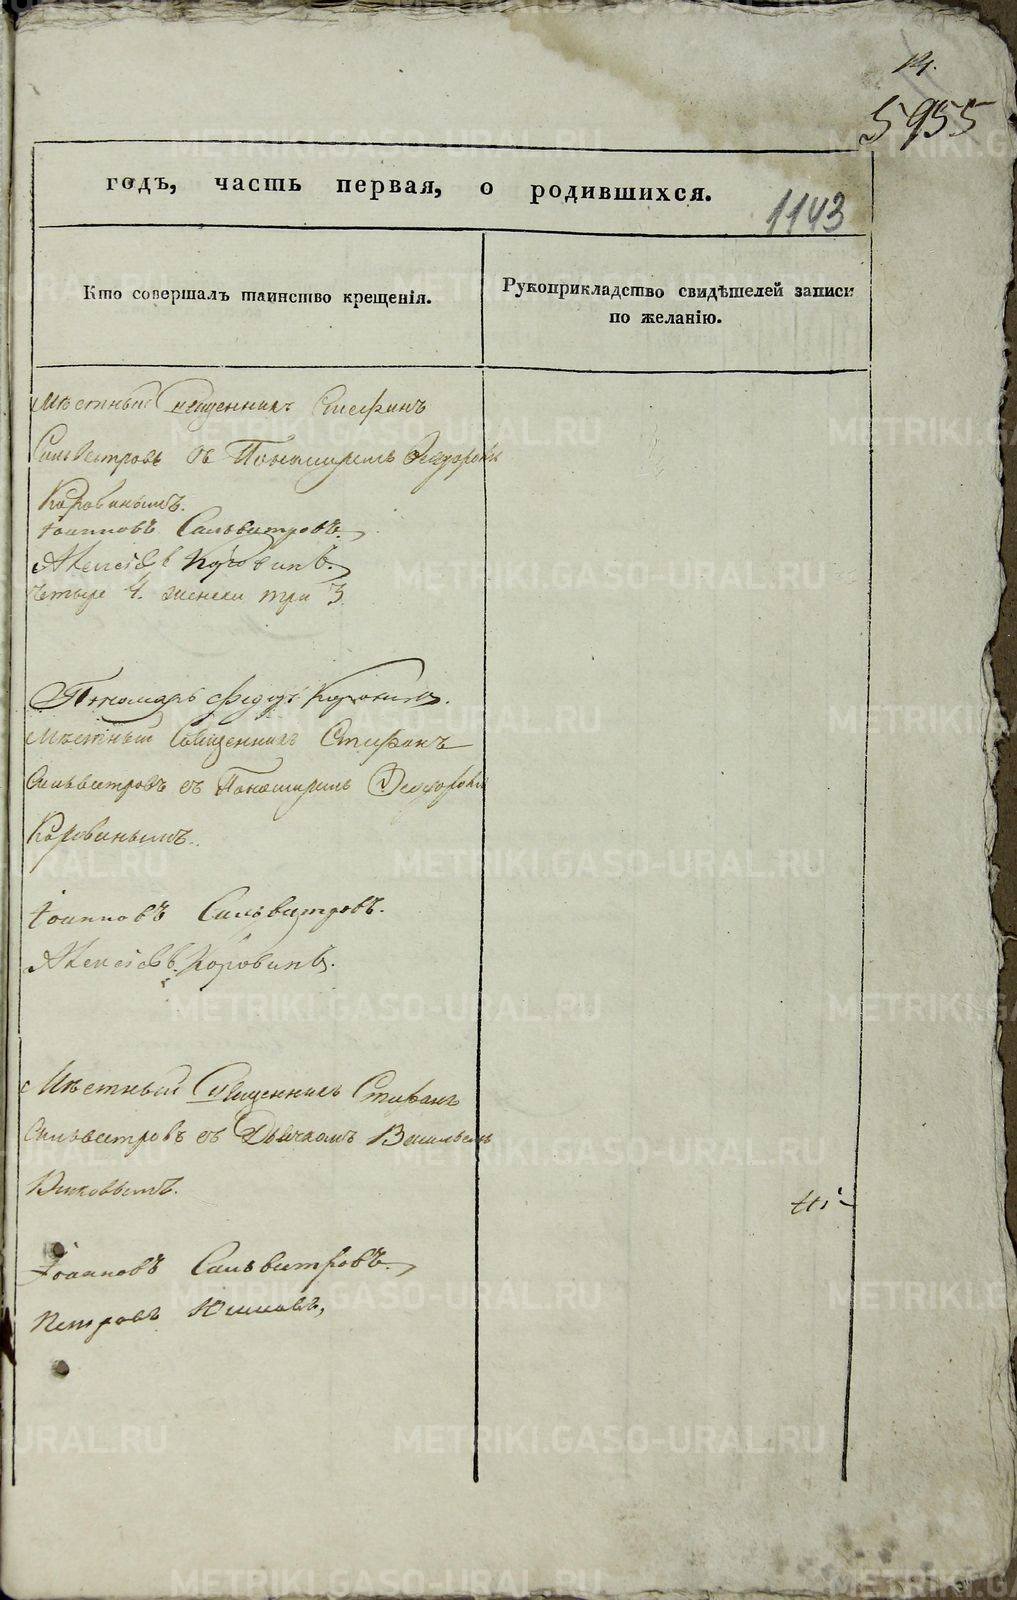 14.
5955
годъ, часть первая, о родившихся.
1143
Кто совершалъ таинство крещенія.
Рукоприкладство свидѣтелей записи
по желанію.
Мѣстный Священникъ Стефанъ
Сильвестровъ съ Пономаремъ Ѳеодоромъ
Коровинымъ.
Іоанновъ Сильвестровъ.
Алексѣевъ Коровинъ.
четыре 4. женска три 3
Пономарь Федоръ Коровинъ.
Мѣстный Священникъ Стефанъ
Сильвестровъ съ Пономаремъ Ѳеодоромъ
Коровинымъ.
Іоанновъ Сильвестровъ.
Алексѣевъ Коровинъ.
Мѣстный Священникъ Стефанъ
Сильвестровъ съ Дьячкомъ
Іоанновъ Сильвестровъ.
Петровъ
METRIKI.GASO-URAL.RU